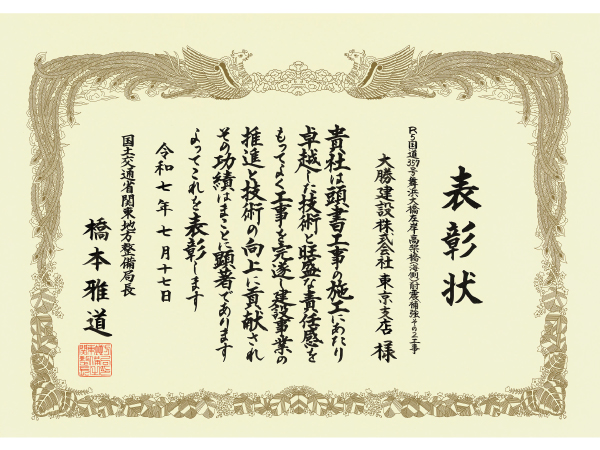 表彰状
R5国道357号舞浜大橋左岸高架橋(海側)耐震補強その2工事
大勝建設株式会社 東京支店 様
貴社は頭書工事の施工にあたり
卓越した技術と旺盛な責任感を
もってよく工事を完遂し建設事業の
推進と技術の向上に貢献され
その功績はまことに顕著であります
よってこれを表彰します
令和七年七月十七日
国土交通省関東地方整備局長
橋本雅道